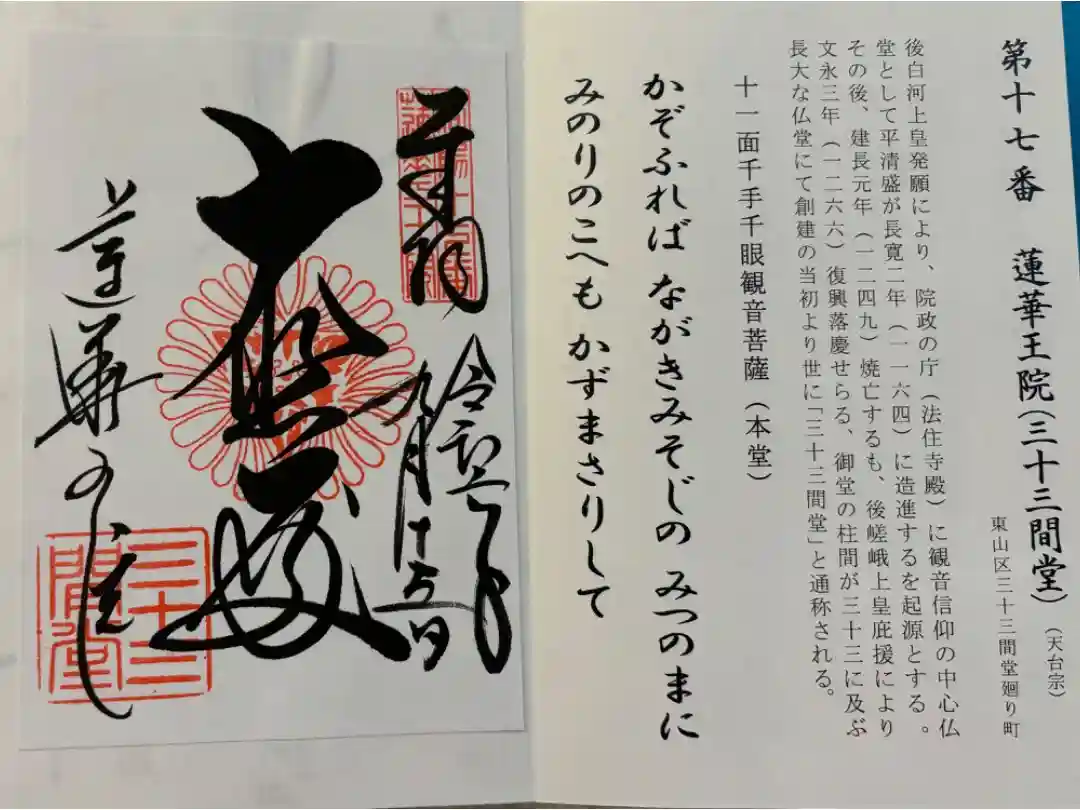 第十七番　蓮華王院(三十三間堂)（天台宗）
東山区三十三間堂廻り町
後白河上皇発願により、院政の庁（法住寺殿）に観音信仰の中心仏
堂として平清盛が長寛二年（一一六四）に造進するを起源とする。
その後、建長元年（一二四九）焼亡するも、後嵯峨上皇庇援により
文永三年（一二六六）復興落慶せらる、御堂の柱間が三十三に及ぶ
長大な仏堂にて創建の当初より世に「三十三間堂」と通称される。
十一面千手千眼観音菩薩（本堂）
かぞふれば ながきみそじの みつのまに
みのりのこへも かずまさりして
奉拝
大悲殿
蓮華王院
三十三
間堂